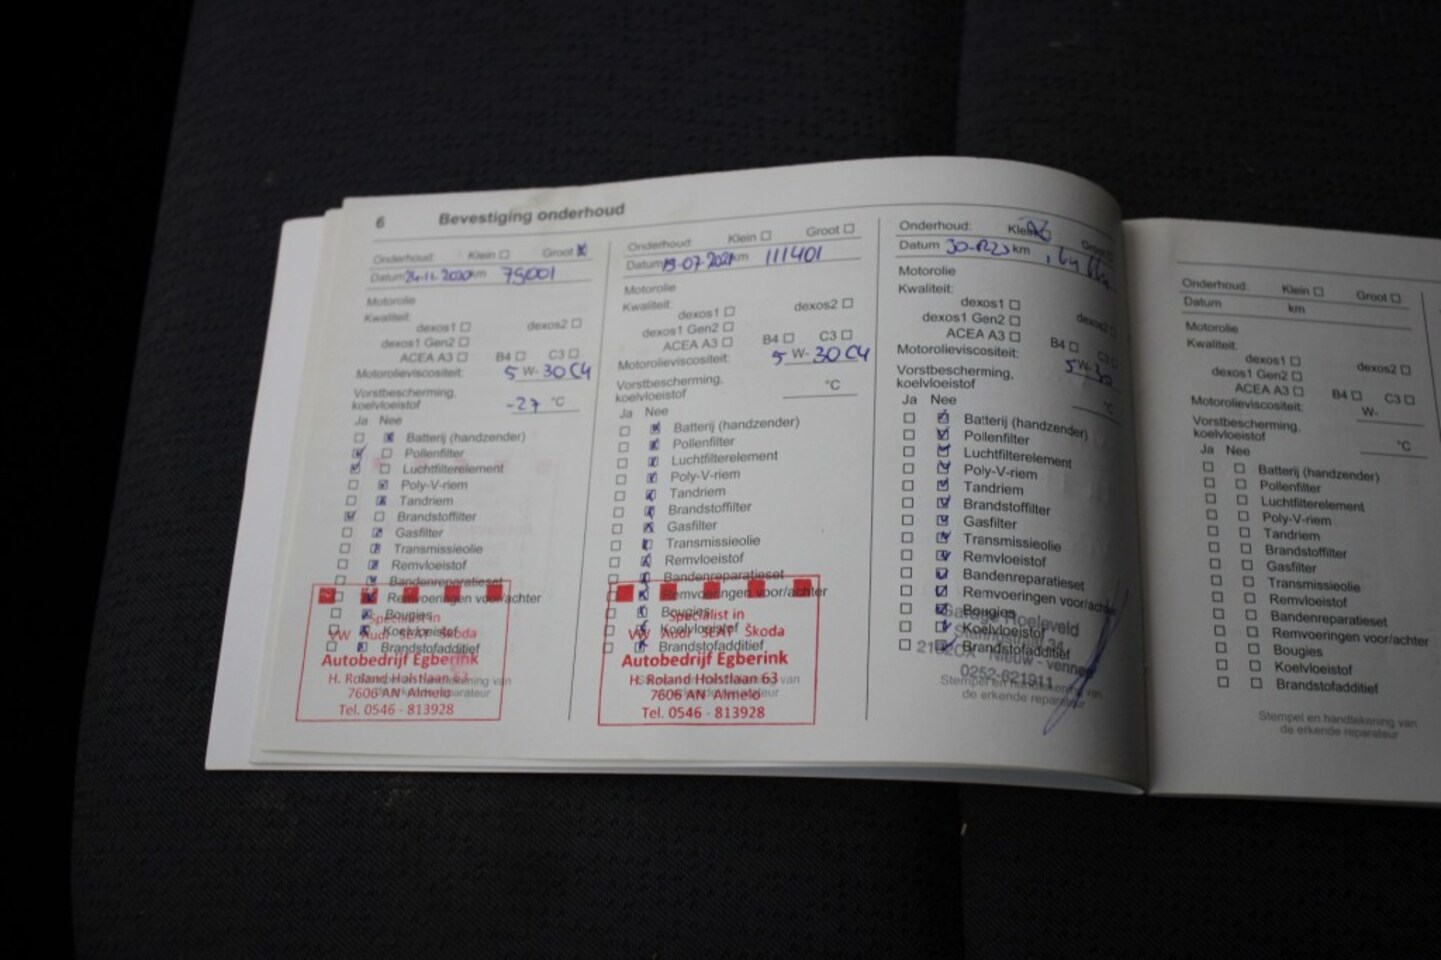 6 Bevestiging onderhoud
Onderhoud: Klein Groot
Datum 24-12-2020 km 75001
Motorolie
Kwaliteit:
dexos1 dexos2
dexos1 Gen2
ACEA A3 B4 C3
Motorolieviscositeit: 5 W- 30 C4
Vorstbescherming,
koelvloeistof -27 °C
Ja Nee
Batterij (handzender)
Pollenfilter
Luchtfilterelement
Poly-V-riem
Tandriem
Brandstoffilter
Gasfilter
Transmissieolie
Remvloeistof
Bandenreparatieset
Remvoeringen voor/achter
Bougies
Koelvloeistof
Brandstofadditief
Specialist in
VW Audi SEAT Škoda
Autobedrijf Egberink
H. Roland Holstlaan 63
7606 AN Almelo
Tel. 0546 - 813928
Onderhoud: Klein Groot
Datum 19-07-2021 km 111401
Motorolie
Kwaliteit:
dexos1 dexos2
dexos1 Gen2
ACEA A3 B4 C3
Motorolieviscositeit: 5 W- 30 C4
Vorstbescherming,
koelvloeistof °C
Ja Nee
Batterij (handzender)
Pollenfilter
Luchtfilterelement
Poly-V-riem
Tandriem
Brandstoffilter
Gasfilter
Transmissieolie
Remvloeistof
Bandenreparatieset
Remvoeringen voor/achter
Bougies
Koelvloeistof
Brandstofadditief
Specialist in
VW Audi SEAT Škoda
Autobedrijf Egberink
H. Roland Holstlaan 63
7606 AN Almelo
Tel. 0546 - 813928
Onderhoud: Klein Groot
Datum km
Motorolie
Kwaliteit:
dexos1 dexos2
dexos1 Gen2
ACEA A3 B4 C3
Motorolieviscositeit: 5 W- 30
Vorstbescherming,
koelvloeistof °C
Ja Nee
Batterij (handzender)
Pollenfilter
Luchtfilterelement
Poly-V-riem
Tandriem
Brandstoffilter
Gasfilter
Transmissieolie
Remvloeistof
Bandenreparatieset
Remvoeringen voor/achter
Bougies
Koelvloeistof
Brandstofadditief
Garage Roeleveld
Nieuw - vennep
0252-621911
Stempel en handtekening van
de erkende reparateur
Onderhoud: Klein Groot
Datum km
Motorolie
Kwaliteit:
dexos1 dexos2
dexos1 Gen2
ACEA A3 B4 C3
Motorolieviscositeit: W-
Vorstbescherming,
koelvloeistof °C
Ja Nee
Batterij (handzender)
Pollenfilter
Luchtfilterelement
Poly-V-riem
Tandriem
Brandstoffilter
Gasfilter
Transmissieolie
Remvloeistof
Bandenreparatieset
Remvoeringen voor/achter
Bougies
Koelvloeistof
Brandstofadditief
Stempel en handtekening van
de erkende reparateur